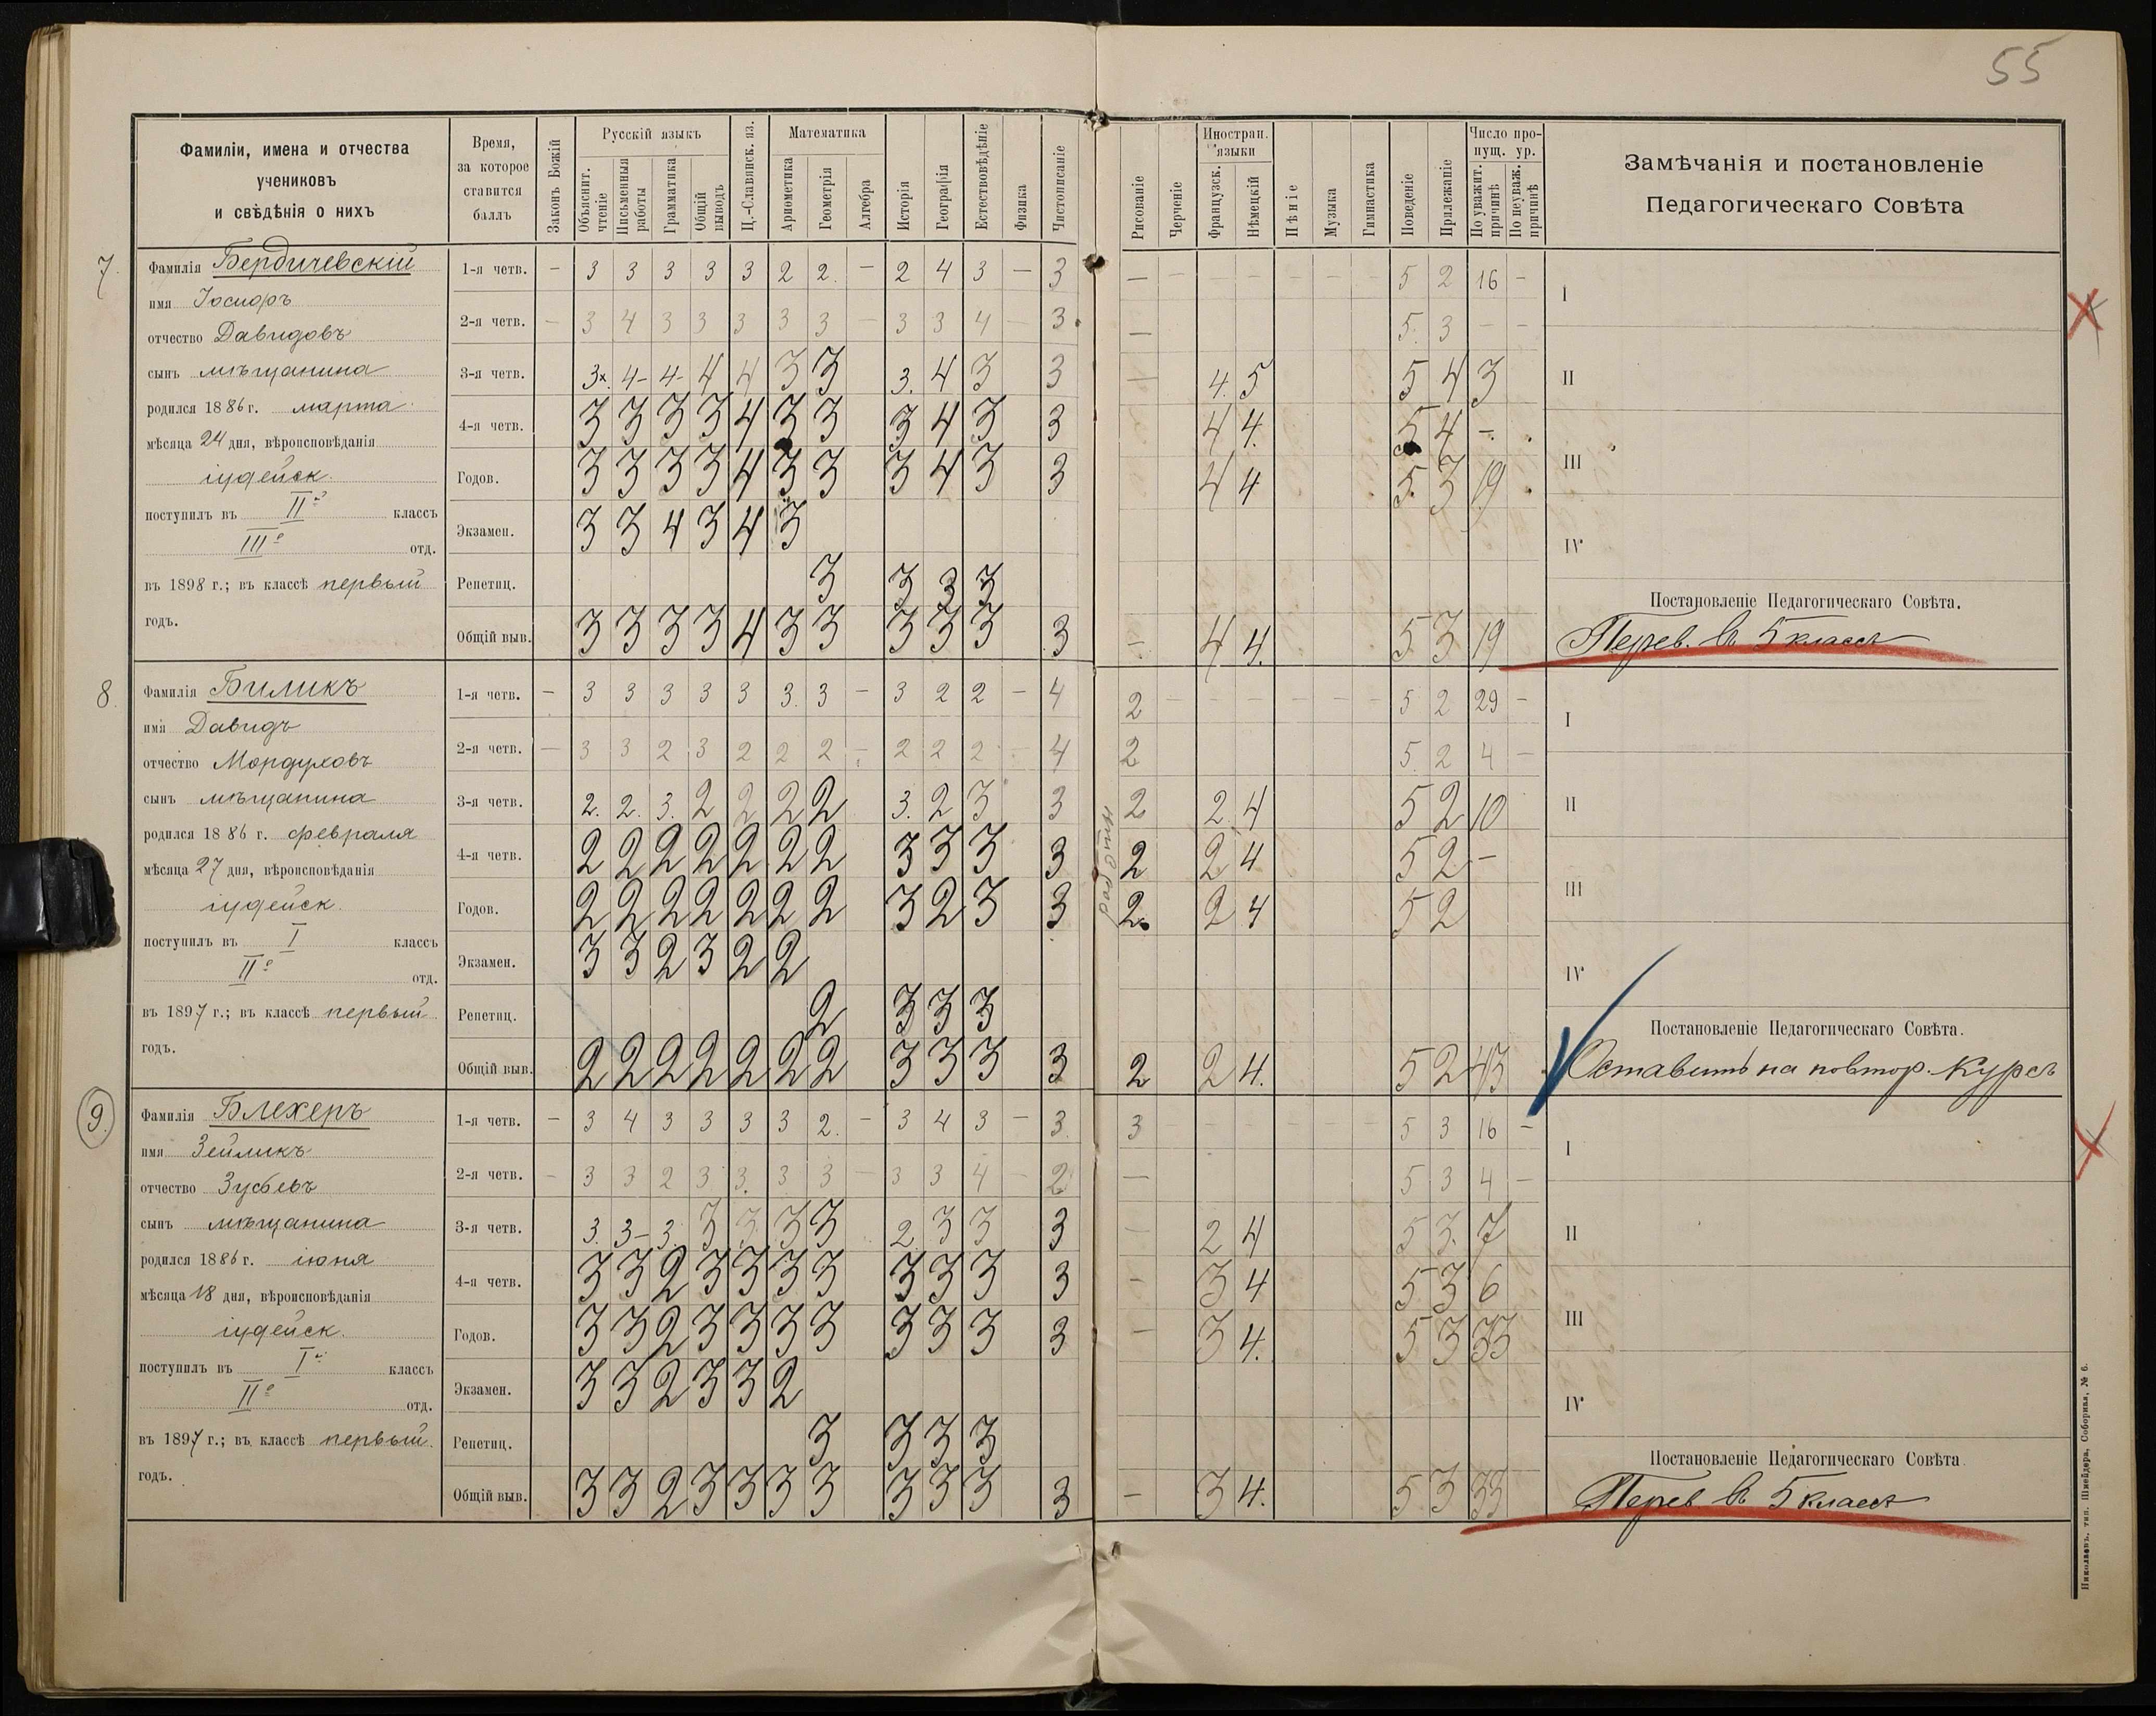 55
Фамиліи, имена и отчества
учениковъ
и свѣдѣнія о нихъ
Время,
за которое
ставится
баллъ
Законъ Божій
Русскій языкъ
Объяснит. чтеніе
Письменныя работы
Грамматика
Общій выводъ
Ц.-Славянск. яз.
Математика
Ариѳметика
Геометрія
Алгебра
Исторія
Географія
Естествовѣдѣніе
Физика
Чистописаніе
Рисованіе
Черченіе
Иностран. языки
Французск.
Нѣмецкій
Пѣніе
Музыка
Гимнастика
Поведеніе
Прилежаніе
Число пропущ. ур.
По уважит. причинѣ
По неуваж. причинѣ
Замѣчанія и постановленіе
Педагогическаго Совѣта
7.
Фамилія Бердичевскій
имя Іосифъ
отчество Давидовъ
сынъ мѣщанина
родился 1886 г. марта
мѣсяца 24 дня, вѣроисповѣданія
іудейск.
поступилъ въ II й классъ
III е отд.
въ 1898 г.; въ классѣ первый
годъ.
1-я четв. – 3 3 3 3 3 2 2. – 2 4 3 – 3 – – – – – – – 5 2 16 –
2-я четв. – 3 4 3 3 3 3 3 – 3 3 4 – 3. – 5. 3 – –
3-я четв. 3х. 4- 4- 4 4 3 3 3. 4 3 3 – 4. 5 5 4 3
4-я четв. 3 3 3 3 4 3 3 3 4 3 3 4 4. 5 4 –.
Годов. 3 3 3 3 4 3 3 3 4 3 3 4 4 5. 3 19
Экзамен. 3 3 4 3 4 3
Репетиц. 3 3 3 3
Общій выв. 3 3 3 3 4 3 3 3 3 3 3 – 4 4. 5 3 19
I
II
III
IV
Постановленіе Педагогическаго Совѣта.
Перев. въ 5 классъ
8.
Фамилія Биликъ
имя Давидъ
отчество Мордуховъ
сынъ мѣщанина
родился 1886 г. февраля
мѣсяца 27 дня, вѣроисповѣданія
іудейск.
поступилъ въ I классъ
II е отд.
въ 1897 г.; въ классѣ первый
годъ.
1-я четв. – 3 3 3 3 3 3. 3 – 3 2 2 – 4 2 – – – – – – 5 2 29 –
2-я четв. – 3 3 2 3 2 2 2 – 2 2 2 – 4 2 5. 2 4 –
3-я четв. 2. 2. 3. 2 2 2 2 3. 2 3 3 2 2. 4 5 2 10
4-я четв. 2 2 2 2 2 2 2 3 3 3 3 2 2 4 5 2 –
Годов. 2 2 2 2 2 2 2 3 2 3 3 2. 2 4 5 2
Экзамен. 3 3 2 3 2 2
Репетиц. 2 3 3 3
Общій выв. 2 2 2 2 2 2 2 3 3 3 3 2 2 4. 5 2 43
I
II
III
IV
Постановленіе Педагогическаго Совѣта.
Оставить на повтор. курсъ
9.
Фамилія Блехеръ
имя Зейликъ
отчество Зусьевъ
сынъ мѣщанина
родился 1886 г. іюня
мѣсяца 18 дня, вѣроисповѣданія
іудейск.
поступилъ въ I й классъ
II е отд.
въ 1897 г.; въ классѣ первый.
годъ.
1-я четв. – 3 4 3 3 3 3 2. – 3 4 3 – 3. 3 – – – – – – 5 3 16 –
2-я четв. – 3 3 2 3 3. 3 3 – 3 3 4 – 2 – 5 3 4 –
3-я четв. 3. 3- 3. 3 3. 3 3 2 3 3 3 – 2 4 5 3. 7
4-я четв. 3 3 2 3 3 3 3 3 3 3 3 – 3 4 5 3 6
Годов. 3 3 2 3 3 3 3 3 3 3 3 – 3 4. 5 3 33
Экзамен. 3 3 2 3 3 2
Репетиц. 3 3 3 3
Общій выв. 3 3 2 3 3 3 3 3 3 3 3 – 3 4. 5 3 33
I
II
III
IV
Постановленіе Педагогическаго Совѣта
Перев въ 5 классъ
Николаевъ, тип. Шнейдера, Соборная, № 6.